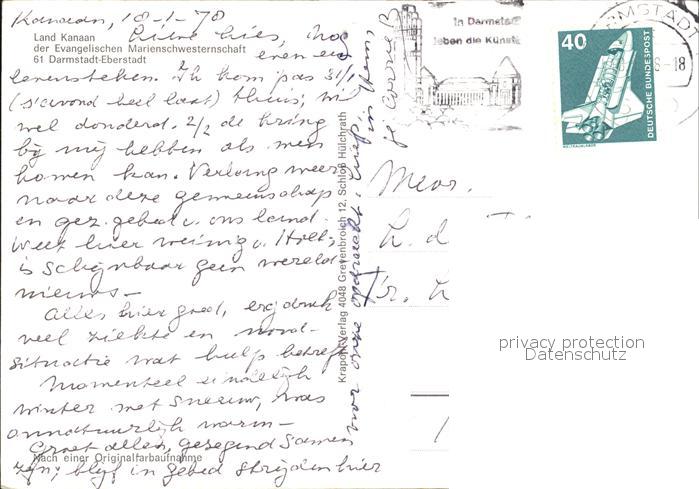 Kanaan, 18-1-78
Land Kanaan
der Evangelischen Marienschwesternschaft
61 Darmstadt-Eberstadt
hies, hoe
even en
Ik kom pas 31/1
(s'avond heel laat) thuis;
wel donderd. 2/2 de kring
bij mij hebben als men
komen kan. Verlang weer
naar deze gemeenschap
en gez. gebed v. ons land.
Weet hier weinig v. Holl;
is schijnbaar geen wereld
nieuws -
Alles hier goed, erg druk
veel ziekte en nood-
situatie wat hulp betreft
Momenteel eindelijk
winter met sneeuw, was
onnatuurlijk warm -
Groet allen, gezegend samen
Nach einer Originalfarbaufnahme
zijn; blijf in gebed strijden hier
voor onze opdracht. Liefs,
in Hem,
Krapohl-Verlag 4048 Grevenbroich 12, Schloß Hülchrath
In Darmstadt
leben die Künste
DARMSTADT
-18
40
DEUTSCHE BUNDESPOST
WELTRAUMLABOR
Mevr.
L. d
privacy protection
Datenschutz